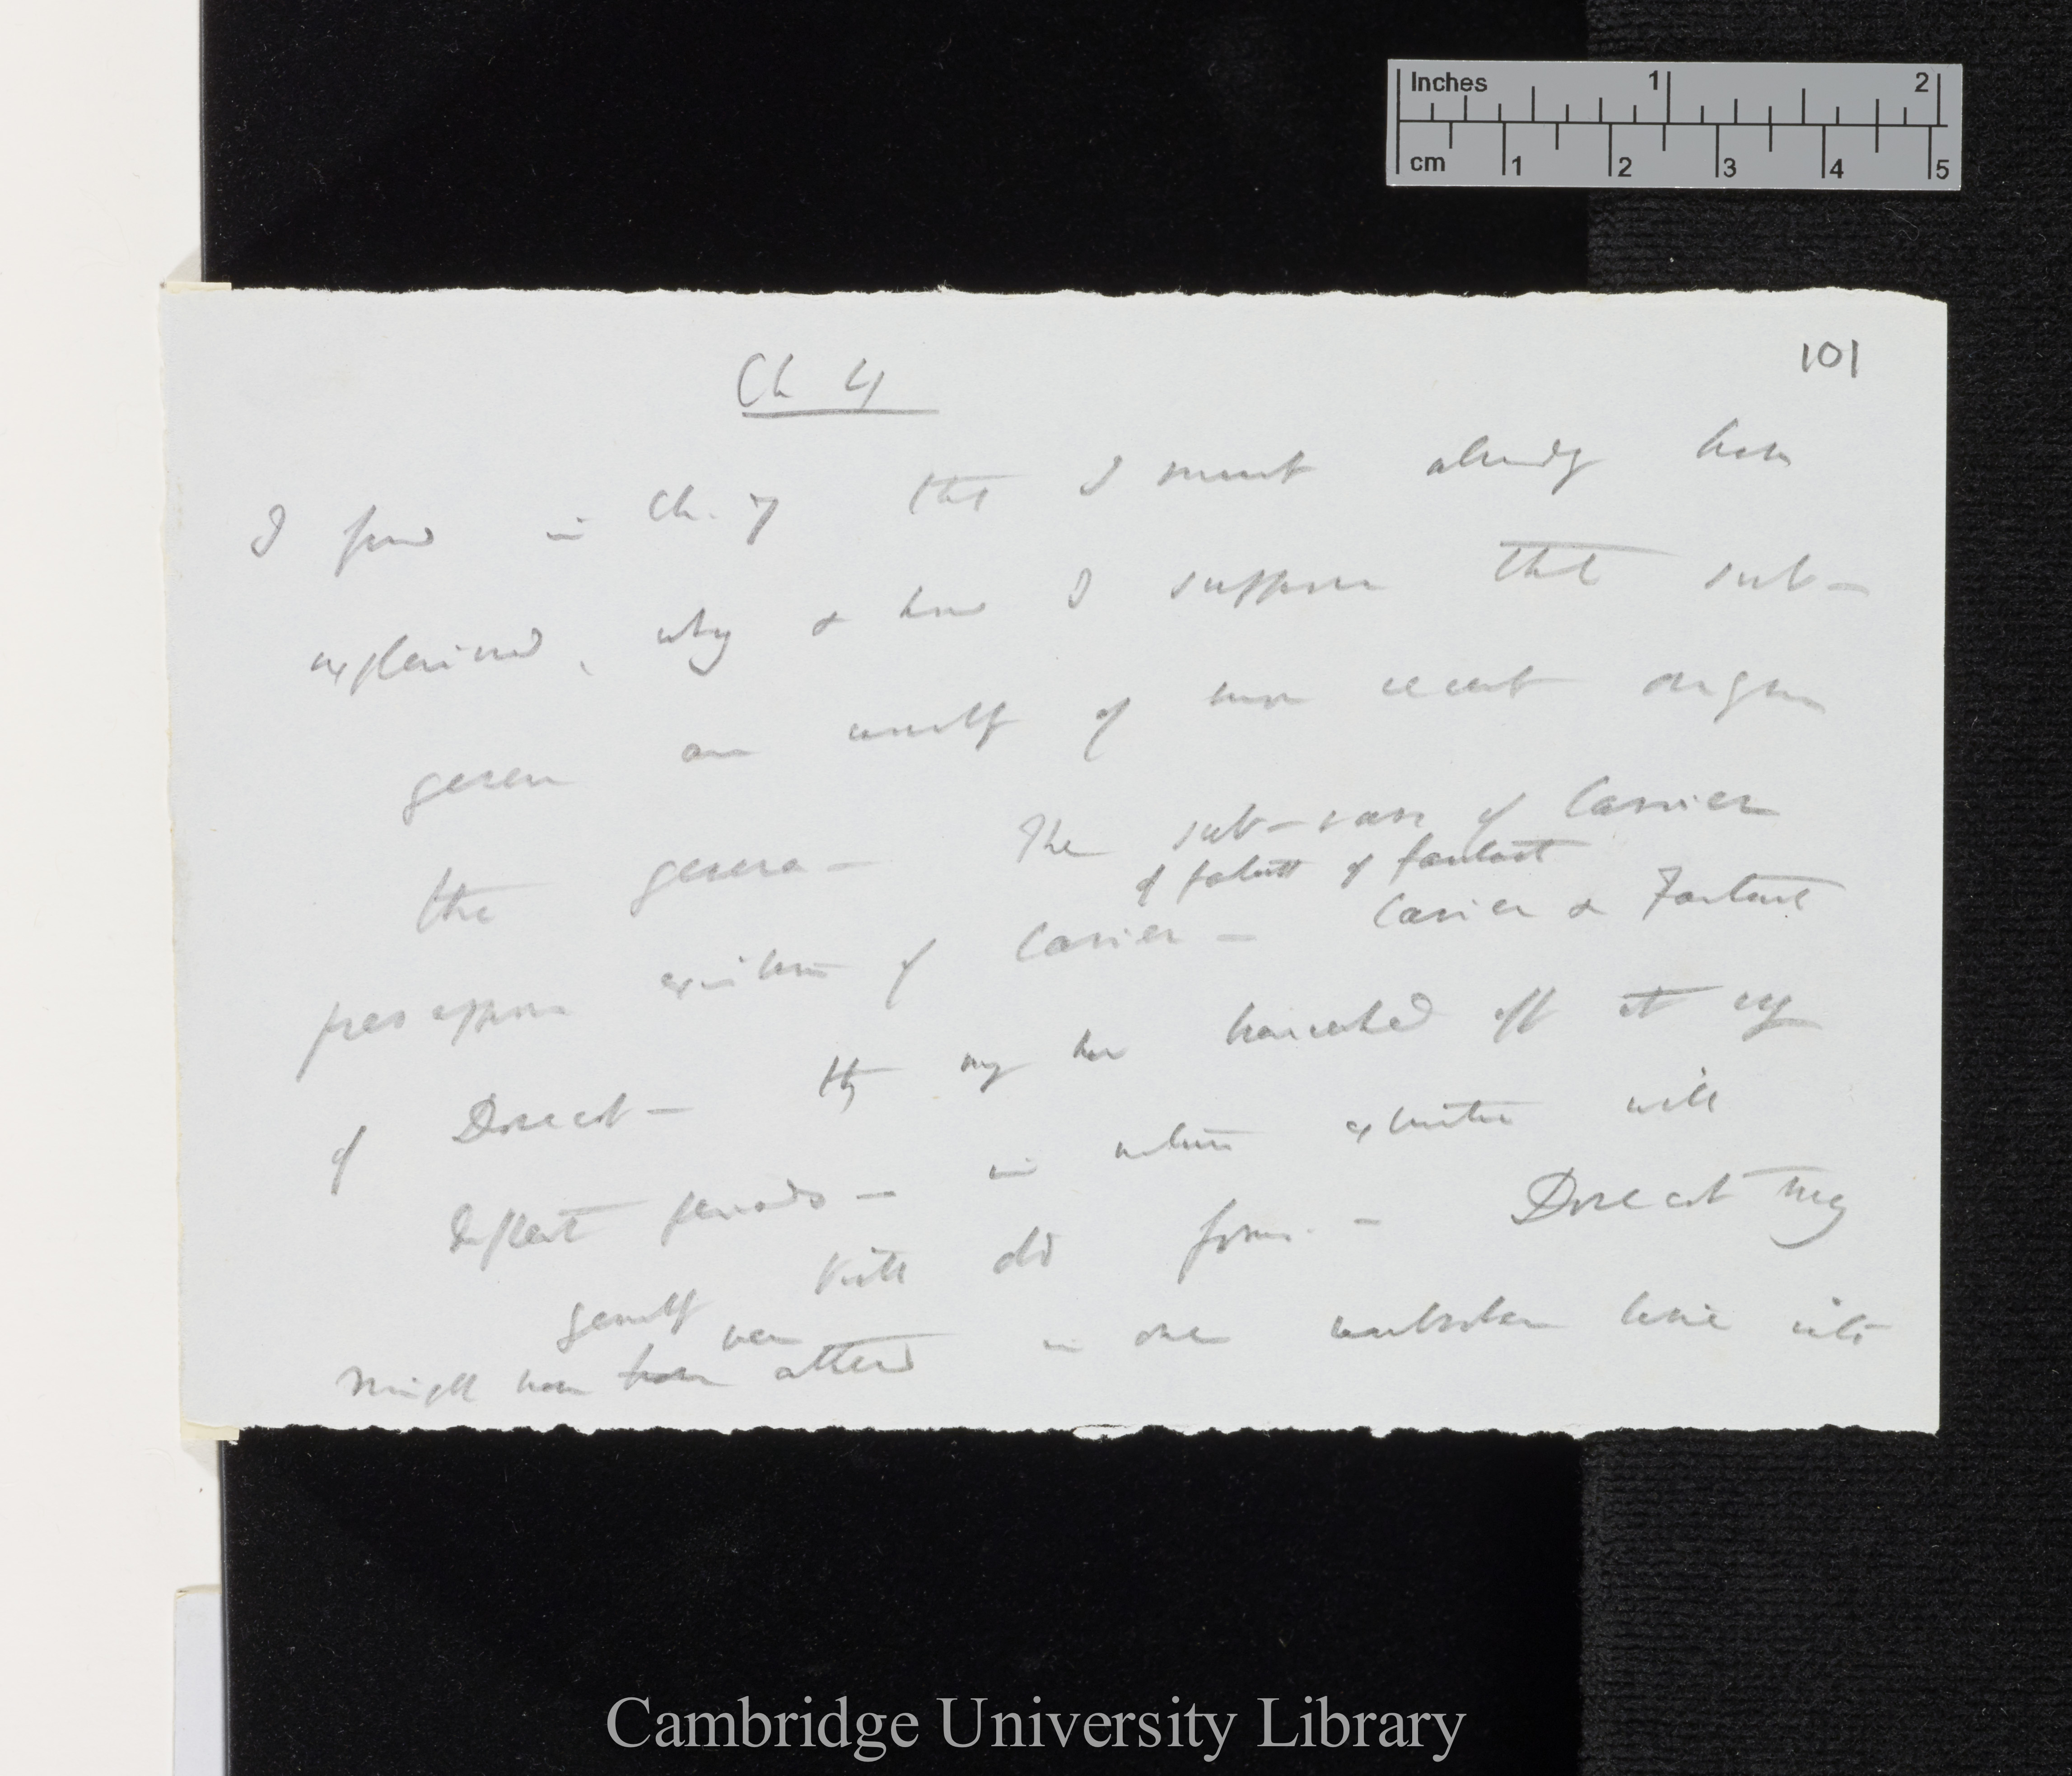 Inches 1 2
cm 1 2 3 4 5
101
Ch 4
I find in Ch. 7 that I must already have
explained, why & how I suppose that sub-
genera are usually of more recent origin
the genera — The sub-races of Carrier
of fantail of fantail
presuppose existence of Carrier — Carrier & Fantail
of Dovecot — they may have branched off at
different periods — in nature extinction will
generally kill old forms. — Dovecot may
might have been altered in one unbroken line into
Cambridge University Library